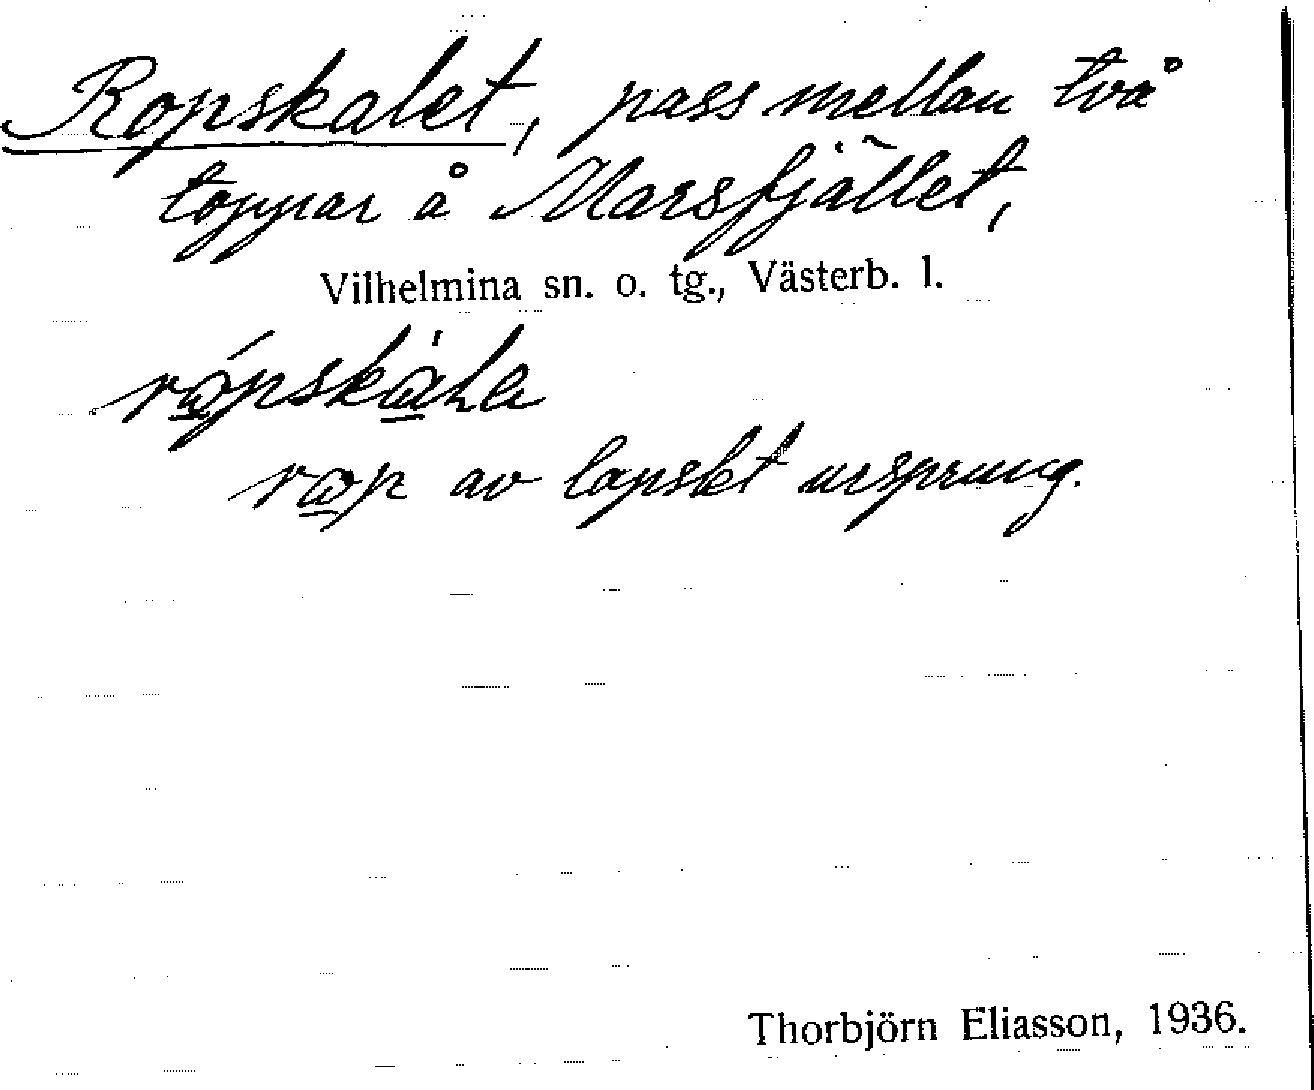 Ropskalet, pass mellan två
toppar å Marsfjället,
Vilhelmina sn. o. tg., Västerb. l.
rop av lapskt ursprung.
Thorbjörn Eliasson, 1936.